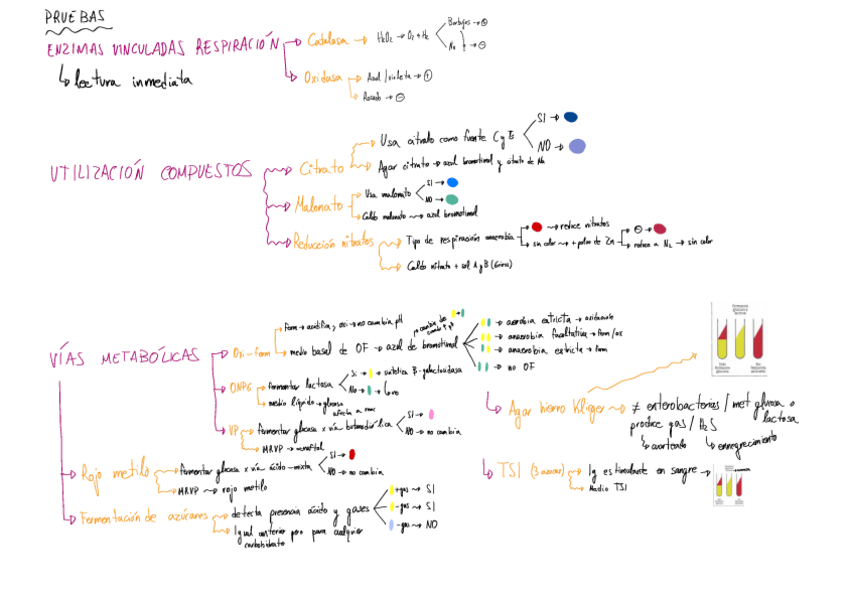 PRUEBAS
ENZIMAS VINCULADAS RESPIRACIÓN
Catalasa → H₂O₂ → O₂ + H₂
Burbujas → ⊕
No → ⊖
lectura inmediata
Oxidasa
Azul/violeta → ⊕
Rosado → ⊖
UTILIZACIÓN COMPUESTOS
Citrato
Usa citrato como fuente C y E
SI →
NO →
Agar citrato → azul bromotimol y citrato de Na
Malonato
Usa malonato
SI →
NO →
Caldo malonato → azul bromotimol
Reducción nitratos
Tipo de respiración anaerobia
→ reduce nitratos
sin color → + polvo de Zn
⊖ →
reduce a N₂ → sin color
Caldo nitrato + sol A y B (Griess)
VÍAS METABÓLICAS
Oxi-ferm
ferm → acidifica, oxi → no cambia pH
medio basal de OF → azul de bromotimol
→ aerobia estricta → oxidación
→ anaerobia facultativa → ferm/ox
→ anaerobia estricta → ferm
→ no OF
ONPG
fermentar lactosa
Si → → sintetiza β-galactosidasa
No →
medio líquido → glucosa
VP
fermentar glucosa x vía butanodiólica
SI →
NO → no cambia
MRVP → α-naftol
Rojo metilo
fomentar glucosa x vía ácido-mixta
SI →
NO → no cambia
MRVP → rojo metilo
Fermentación de azúcares
detecta presencia ácido y gases
+gas → SI
-gas → SI
-gas → NO
Igual anterior pero para cualquier
carbohidrato
Agar hierro Kligler → ≠ enterobacterias / met glucosa o
lactosa
produce gas / H₂S
ennegrecimiento
TSI (3 azúcares)
Medio TSI